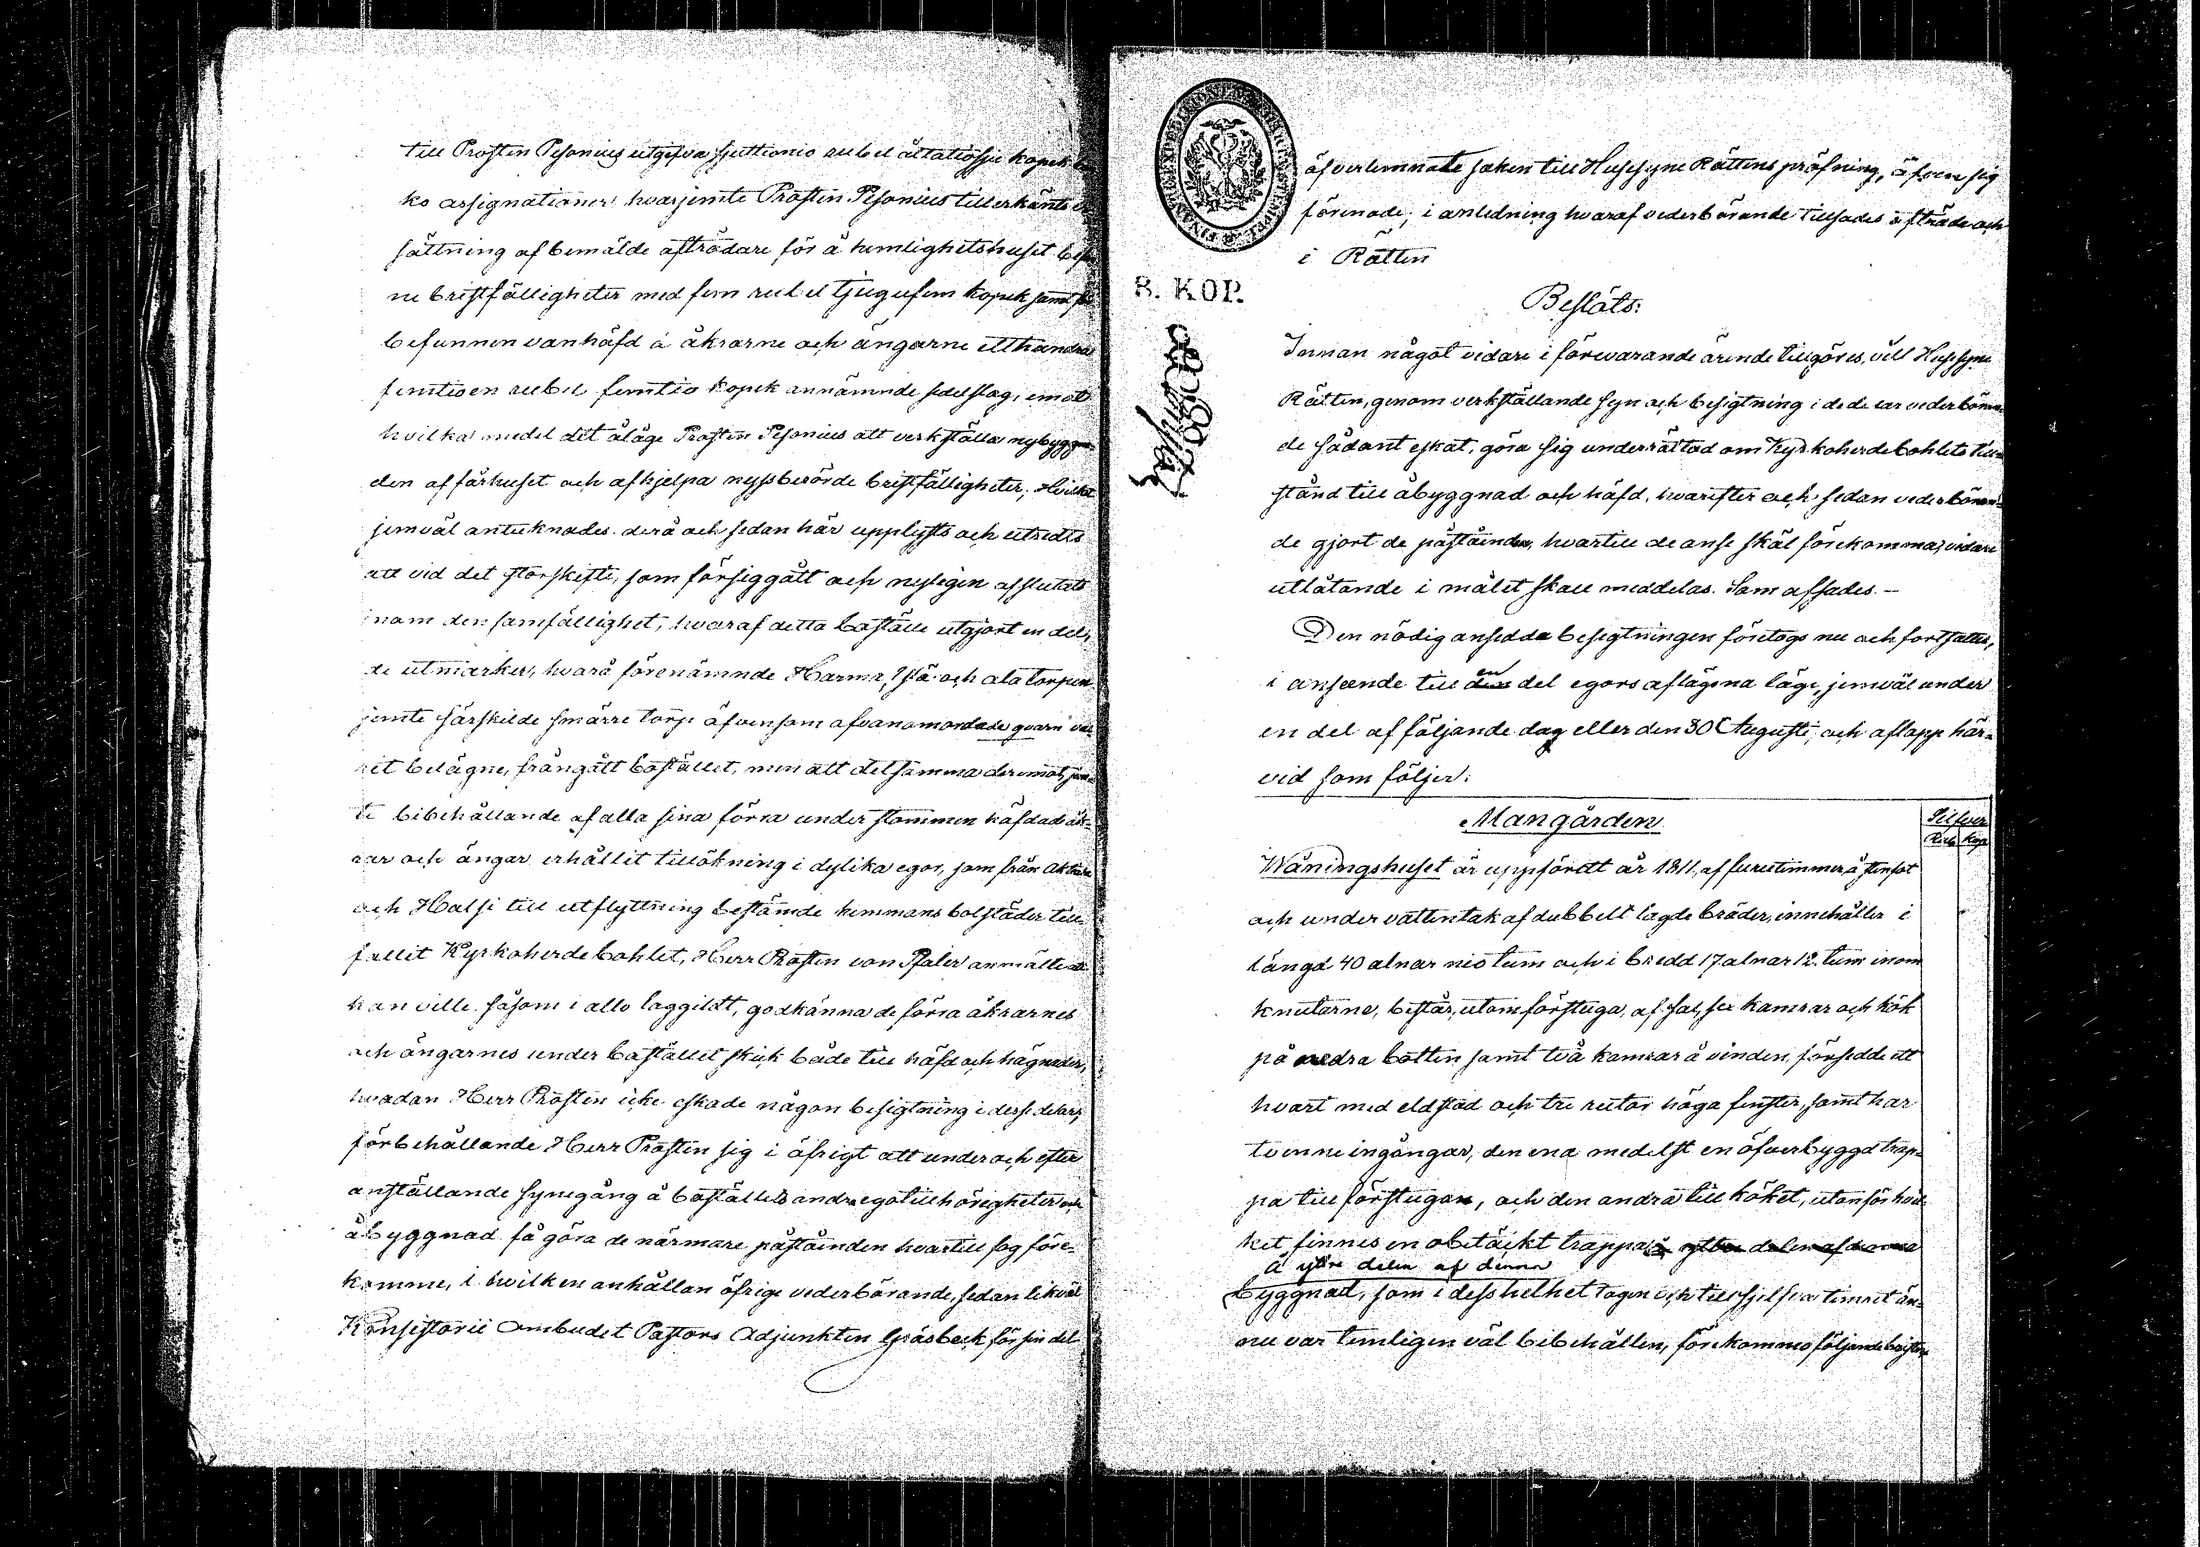 till Prosten Pesonius utgifva sjuttionio rubel åttatiosju kopek
ko assignationer; hvarjemte Prosten Pesonius tillerkänts
sättning af bemälde afträdare för å hemlighetshuset
ne bristfälligheter med fem rubel tjugufem kopek samt
befunnen vanhäfd å åkrarne och ängarne etthundra
femtioen rubel femtio kopek annämnde sedelslag, emot
hvilka medel det ålåge Prosten Pesonius att verkställa nybyggna-
den af fårhuset och afhjelpa nyssberörde bristfälligheter; Hvilka
jemväl antecknades derå och sedan här upplysts och utredts
att vid det storskifte, som försiggått och nyligen afslutats
inom den samfällighet, hvaraf detta boställe utgjort en del,
de utmarker, hvarå förenämnde Harma, och ala torpen
jemte särskilde smärre torp äfvensom afvanomordade qvarn va-
rit belägne, frångått bostället, men att detsamma deremot, jem-
te bibehållande af alla sina förra under stommen häfdade åk-
rar och ängar erhållit tillökning i dylika egor, som från
och Halsi till utflyttning bestämde hemmans bolstäder till-
fallit Kyrkoherdebohlet, Herr Prosten von Pfaler anmälte
han ville såsom i allo laggildt, godkänna de förra åkrarnes
och ängarnes under bostället skick både till häfd och hägnader,
hvadan Herr Prosten icke eskade någon besigtning i desse delar,
förbehållande Herr Prosten sig i öfrigt att under och efter
anställande synegång å boställets andra egotillhörigheter och
åbyggnad få göra de närmare påståenden hvartill fog före-
komme, i hvilken anhållan öfrige vederbörande, sedan likväl
Konsistorii Ombudet Pastors Adjunkten Gråsbeck för sin del
öfverlemnate saken till Husesyne Rättens pröfning, äfven sig
förenade; i anledning hvaraf vederbörande tillsades afträde och
i Rätten
8. KOP.
Beslöts:
Innan något vidare i förevarande ärende tillgöres, vill Husesyne
Rätten, genom verkställande syn och besigtning i de delar vederböran-
de sådant eskat, göra sig underrättad om Kyrkoherdebohlets till-
stånd till åbyggnad och häfd, hvarefter och sedan vederböran-
de gjort de påståenden, hvartill de anse skäl förekomma, vidare
utlåtande i målet skall meddelas. Som afsades. —
Den nödig ansedda besigtningen företogs nu och fortsattes,
i anseende till en del egors aflägsna läge, jemväl under
en del af följande dag eller den 30 Augusti, och aflopp här-
vid som följer:
Mangården
Silfver
Rub Kop
Wåningshuset är uppfördt år 1811, af furutimmer å stenfot
och under vattentak af dubbelt lagde bräder, innehåller i
längd 40 alnar nio tum och i bredd 17 alnar 12 tum inom
knutarne, består, utom förstuga, af sal, sex kamrar och kök
på nedra botten samt två kamrar å vinden, försedde ett
hvart med eldstad och tre rutor höga fenster, samt har
tvenne ingångar, den ena medelst en öfverbyggd trap-
pa till förstugan, och den andra till köket, utanför hvil-
ket finnes en obetäckt trappa å yttre delen af denna
å yttre delen af denna
byggnad, som i dess helhet tagen och till sjelfva timret än-
nu var temligen väl bibehållen, förekommo följande brister